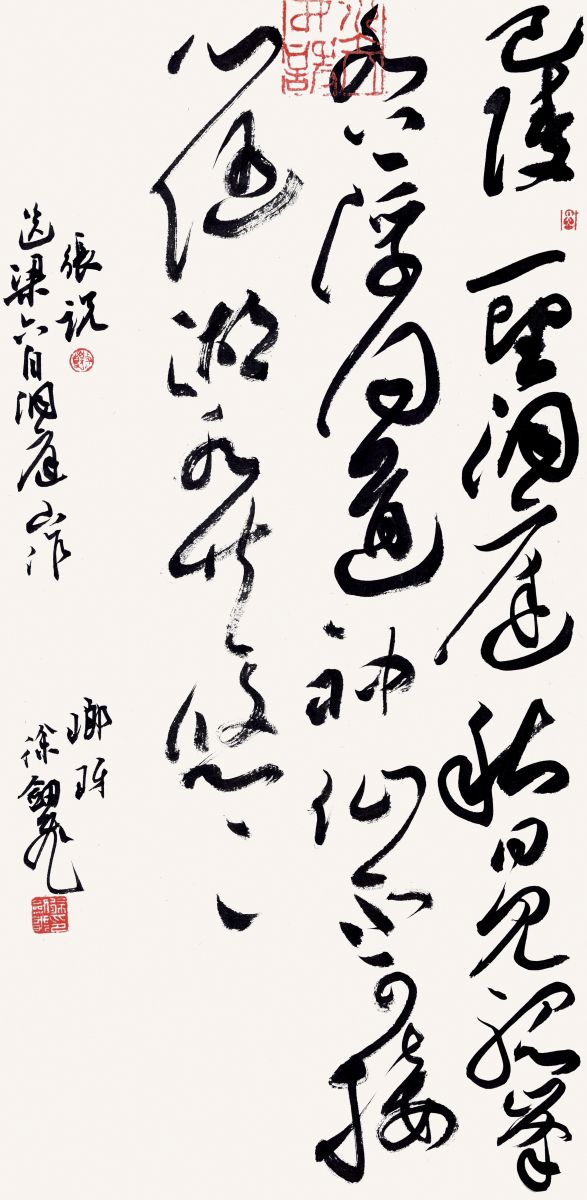 巴陵一望洞庭秋日見孤峯
水上浮聞道神仙不可接
心隨湖水共悠〻
張說
送梁六自洞庭山作
瑯玡
徐劍飛